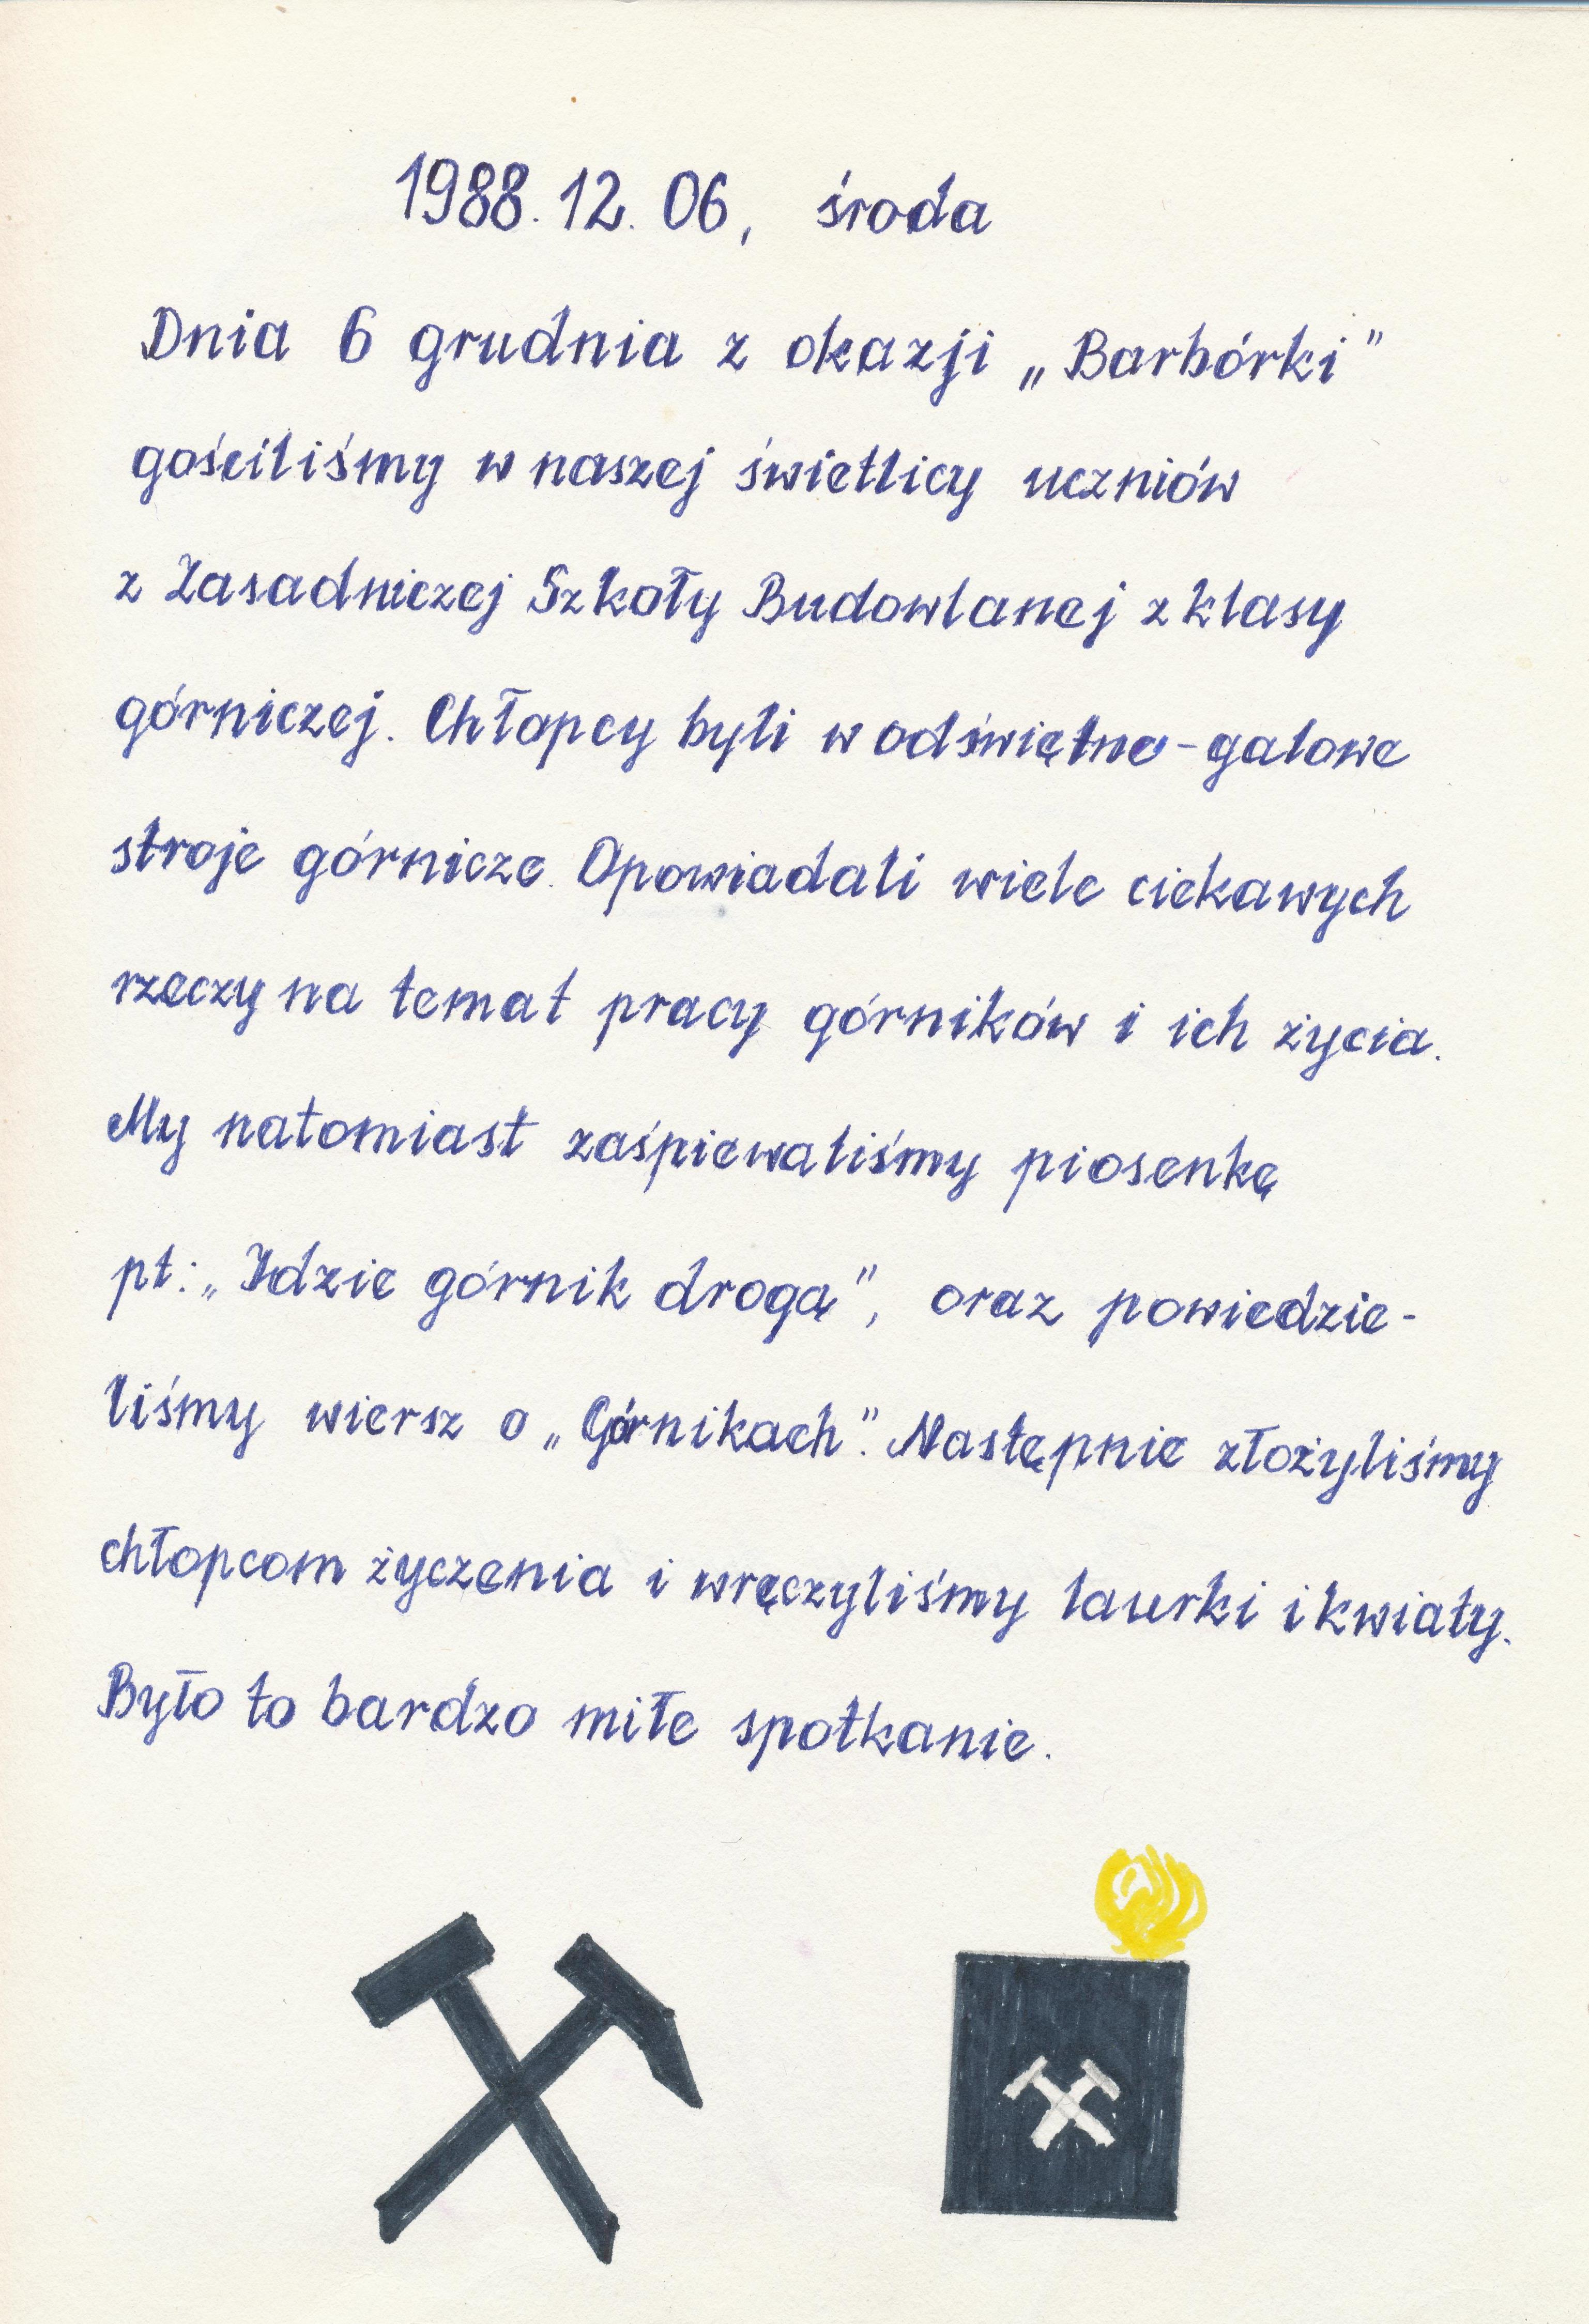 1988.12.06, środa
Dnia 6 grudnia z okazji „Barbórki”
gościliśmy w naszej świetlicy uczniów
z Zasadniczej Szkoły Budowlanej z klasy
górniczej. Chłopcy byli w odświętno-galowe
stroje górnicze. Opowiadali wiele ciekawych
rzeczy na temat pracy górników i ich życia.
My natomiast zaśpiewaliśmy piosenkę
pt.: „Idzie górnik drogą”, oraz powiedzie-
liśmy wiersz o „Górnikach”. Następnie złożyliśmy
chłopcom życzenia i wręczyliśmy laurki i kwiaty.
Było to bardzo miłe spotkanie.